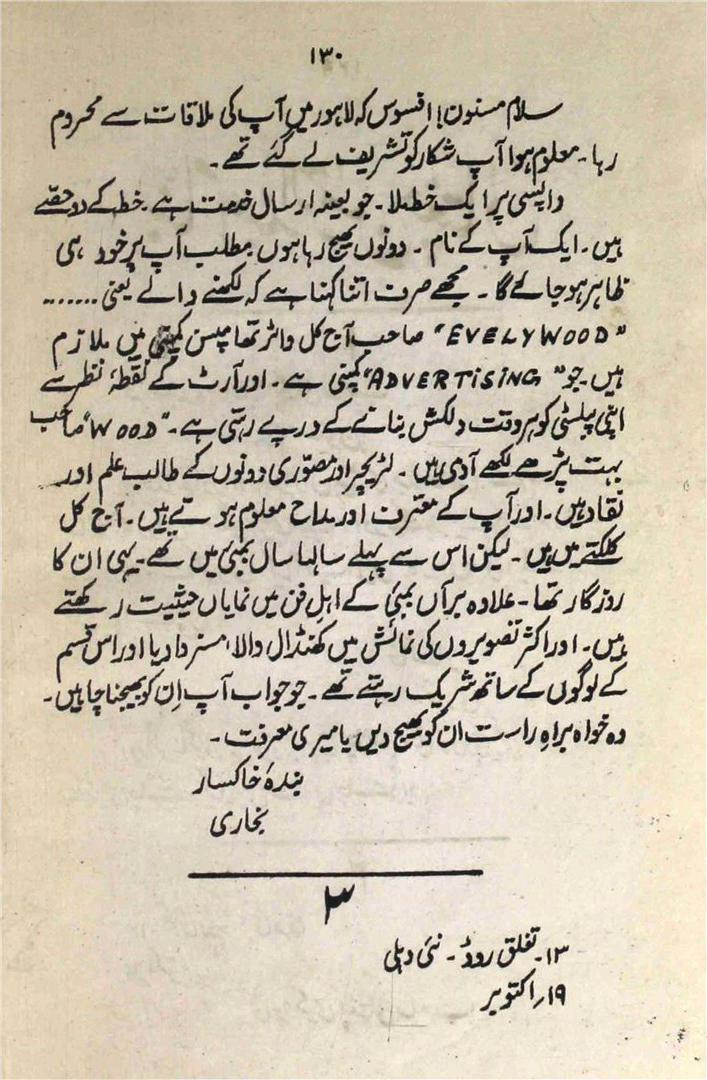 ۱۳۰
سلام مسنون! افسوس کہ لاہور میں آپ کی ملاقات سے محروم
رہا۔ معلوم ہوا آپ شکار کو تشریف لے گئے تھے۔
واپسی پر ایک خط ملا۔ جو بعینہ ارسال خدمت ہے۔ خط کے دو حصّے
ہیں۔ ایک آپ کے نام۔ دونوں بھیج رہا ہوں مطلب آپ پر خود ہی
ظاہر ہو جائے گا۔ مجھے صرف اتنا کہنا ہے کہ لکھنے والے یعنی .......
"EVELYWOOD" صاحب آج کل والٹر تھامپسن کمپنی میں ملازم
ہیں۔ جو "ADVERTISING" کمپنی ہے۔ اور آرٹ کے نقطۂ نظر سے
اپنی پبلسٹی کو ہر وقت دلکش بنانے کے درپے رہتی ہے۔ "WOOD" صاحب
بہت پڑھے لکھے آدمی ہیں۔ لٹریچر اور مصوّری دونوں کے طالب علم اور
نقاد ہیں۔ اور آپ کے معترف اور مداح معلوم ہوتے ہیں۔ آج کل
کلکتے میں ہیں۔ لیکن اس سے پہلے سالہا سال بمبئی میں تھے۔ یہی ان کا
روزگار تھا۔ علاوہ برآں بمبئی کے اہلِ فن میں نمایاں حیثیت رکھتے
ہیں۔ اور اکثر تصویروں کی نمائش میں کھنڈال والا، مسز دادیا اور اس قسم
کے لوگوں کے ساتھ شریک رہتے تھے۔ جو جواب آپ اِن کو بھیجنا چاہیں۔
وہ خواہ براہِ راست ان کو بھیج دیں یا میری معرفت۔
بندۂ خاکسار
بخاری
۳
۱۳۔ تغلق روڈ۔ نئی دہلی
۱۹؍ اکتوبر